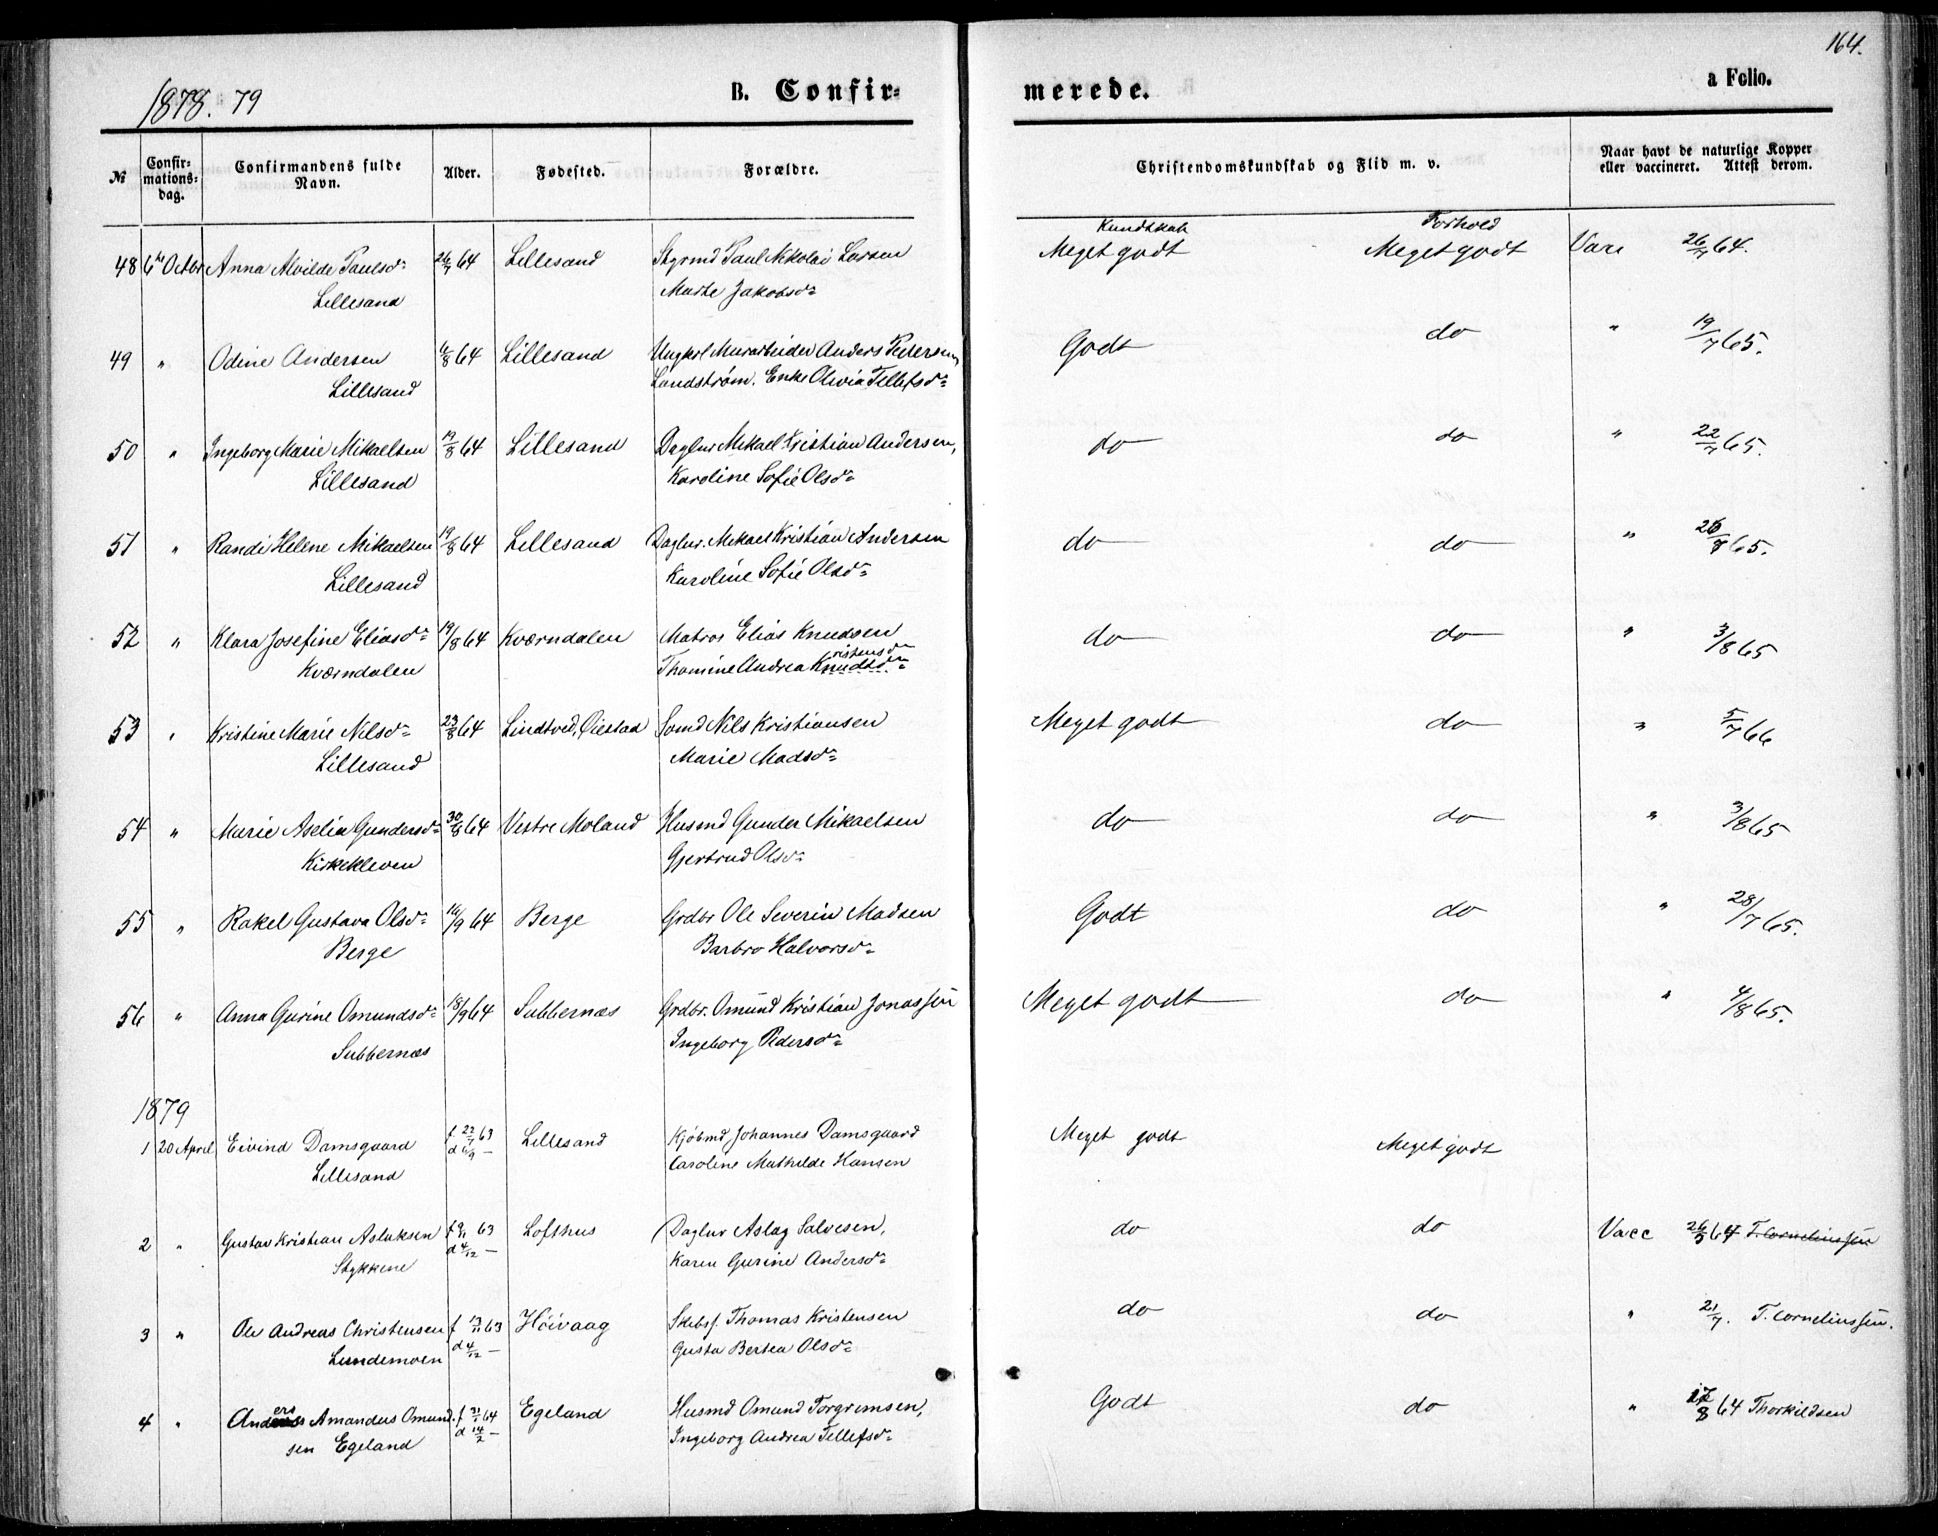 164.
1878. 79
B. Confir-
merede.
a Folio.
№
Confir-
mations-
dag.
Confirmandens fulde
Navn.
Alder.
Fødested.
Forældre.
Christendomskundskab og Flid m. v.
Naar havt de naturlige Kopper
eller vaccineret. Attest derom.
Kundskab Forhold
48 6te Octbr Anna Alvilde Paulsdr 26/7 64 Lillesand Paul Nikolai Larsen Meget godt Meget godt Vacc 26/7 64.
Lillesand Marte Jakobsdr
49 " Odine Andersen 11/8 64 Lillesand Ungkrl Murarbeider Anders Pedersen Godt do " 19/7 65.
Lillesand Landstrøm. Enke Olivia Tellefsdr
50 " Ingeborg Marie Mikaelsen 19/8 64 Lillesand Daglnr Mikael Kristian Andersen, do do " 22/7 65.
Lillesand Karoline Sofie Olsdr
51 " Randi Helene Mikaelsen 19/8 64 Lillesand Daglnr. Mikael Kristian Andersen do do " 65.
Lillesand Karoline Sofie Olsdr
52 " Klara Josefine Eliasdr 19/8 64 Kværndalen Matros Elias Knudsen do do " 3/8 65
ristensdr
Kværndalen Thomine Andrea Knudsdr
53 " Kristine Marie Nilsdr 23/8 64 Lindtved, Øiestad Sømd Nils Kristiansen Meget godt do " 5/7 66
Lillesand Marie Madsdr
54 " Marie Aselia Gundersdr 30/8 64 Vestre Moland Husmd Gunder Mikaelsen do do " 3/8 65
Kirkekleven Gjertrud Olsdr
55 " Rakel Gustava Olsdr 16/9 64 Berge Grdbr Ole Severin Madsen Godt do " 28/7 65.
Berge Barbro Halvorsdr
56 " Anna Gurine Omundsdr 18/9 64 Subbernæs Grdbr. Omund Kristian Jonassen Meget godt do " 4/8 65.
Subbernæs Ingeborg Pedersdr
1879
1 20 April Eivind Damsgaard f 22/7 63 Lillesand Kjøbmd Johannes Damsgaard Meget godt Meget godt
Lillesand d 6/9 — Caroline Mathilde Hansen
2 " Gustav Kristian Aslaksen f 9/11 63 Lofthus Daglnr Aslag Salvesen, do do Vacc 26/5 64 T. Corneliussen
Stykkene d 4/12 — Karen Gurine Andersdr
3 " Ole Andreas Christensen f 13/11 63 Høivaag Skibsf. Thomas Kristensen do do " 21/7. T. Corneliussen.
Lundemoen d 4/12 — Gusta Bertea Olsdr
4 " Anders Amandus Omund- f 31/1 64 Egeland Husmd Omund Torgrimsen, Godt do " 17/8 64 Thorkildsen
sen Egeland d 14/2 — Ingeborg Andrea Tellefsdr